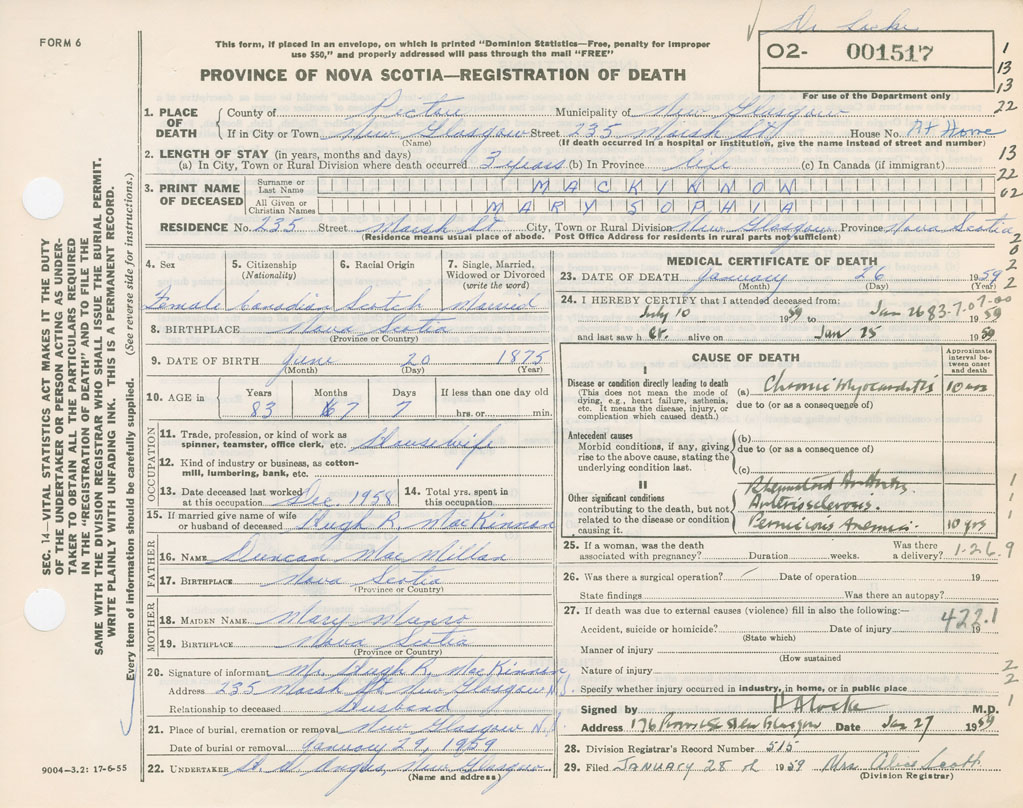 Dr Locke
FORM 6
This form, if placed in an envelope, on which is printed "Dominion Statistics—Free, penalty for improper
use $50," and properly addressed will pass through the mail "FREE"
PROVINCE OF NOVA SCOTIA—REGISTRATION OF DEATH
O2- 001517
For use of the Department only
1
13
13
22
13
22
02
2
0
2
2
1. PLACE OF DEATH
County of Pictou Municipality of New Glasgow
If in City or Town New Glasgow Street 235 Marsh St House No. At Home
(Name) (If death occurred in a hospital or institution, give the name instead of street and number)
2. LENGTH OF STAY (in years, months and days)
(a) In City, Town or Rural Division where death occurred 3 years (b) In Province life (c) In Canada (if immigrant)
3. PRINT NAME OF DECEASED
Surname or Last Name MACKINNON
All Given or Christian Names MARY SOPHIA
RESIDENCE No. 235 Street Marsh St City, Town or Rural Division New Glasgow Province Nova Scotia
(Residence means usual place of abode. Post Office Address for residents in rural parts not sufficient)
4. Sex Female
5. Citizenship (Nationality) Canadian
6. Racial Origin Scotch
7. Single, Married, Widowed or Divorced (write the word) Married
8. BIRTHPLACE Nova Scotia
(Province or Country)
9. DATE OF BIRTH June 20 1875
(Month) (Day) (Year)
10. AGE in Years 83 Months 7 Days 7 If less than one day old hrs. or min.
OCCUPATION
11. Trade, profession, or kind of work as spinner, teamster, office clerk, etc. Housewife
12. Kind of industry or business, as cotton-mill, lumbering, bank, etc.
13. Date deceased last worked at this occupation Dec. 1958
14. Total yrs. spent in this occupation
15. If married give name of wife or husband of deceased Hugh R. MacKinnon
FATHER
16. NAME Duncan MacMillan
17. BIRTHPLACE Nova Scotia
(Province or Country)
MOTHER
18. MAIDEN NAME Mary Munro
19. BIRTHPLACE Nova Scotia
(Province or Country)
20. Signature of informant Mr. Hugh R. MacKinnon
Address 235 Marsh St. New Glasgow N.S.
Relationship to deceased Husband
21. Place of burial, cremation or removal New Glasgow N.S.
Date of burial or removal January 29, 1959
22. UNDERTAKER Angus, New Glasgow
(Name and address)
MEDICAL CERTIFICATE OF DEATH
23. DATE OF DEATH January 26 1959
(Month) (Day) (Year)
24. I HEREBY CERTIFY that I attended deceased from:
July 10 1959 to Jan 26 1959
83-7-07-00
and last saw her alive on Jan 25 1959
CAUSE OF DEATH
Approximate interval between onset and death
I
Disease or condition directly leading to death
(This does not mean the mode of dying, e.g., heart failure, asthenia, etc. It means the disease, injury, or complication which caused death.)
(a) Chronic Myocarditis 10 yrs
due to (or as a consequence of)
Antecedent causes
Morbid conditions, if any, giving rise to the above cause, stating the underlying condition last.
(b)
due to (or as a consequence of)
(c)
II
Other significant conditions contributing to the death, but not related to the disease or condition causing it.
Rheumatoid Arthritis 1
Arteriosclerosis. 1
Pernicious Anemia. 10 yrs 1
25. If a woman, was the death associated with pregnancy? Duration weeks. Was there a delivery? 1-26.9
26. Was there a surgical operation? Date of operation 19
State findings Was there an autopsy?
27. If death was due to external causes (violence) fill in also the following:—
422.1
Accident, suicide or homicide? Date of injury 19
(State which)
Manner of injury
(How sustained
Nature of injury 2
Specify whether injury occurred in industry, in home, or in public place 2
Signed by H A Locke M.D. 1
Address 176 New Glasgow Date Jan 27 1959
28. Division Registrar's Record Number 515
29. Filed JANUARY 28th 1959 Mrs. Alice Scott
(Division Registrar)
SEC. 14—VITAL STATISTICS ACT MAKES IT THE DUTY
OF THE UNDERTAKER OR PERSON ACTING AS UNDER-
TAKER TO OBTAIN ALL THE PARTICULARS REQUIRED
IN THE "REGISTRATION OF DEATH" AND FILE THE
SAME WITH THE DIVISION REGISTRAR WHO SHALL ISSUE THE BURIAL PERMIT.
WRITE PLAINLY WITH UNFADING INK. THIS IS A PERMANENT RECORD.
Every item of information should be carefully supplied. (See reverse side for instructions.)
9004—3.2: 17-6-55